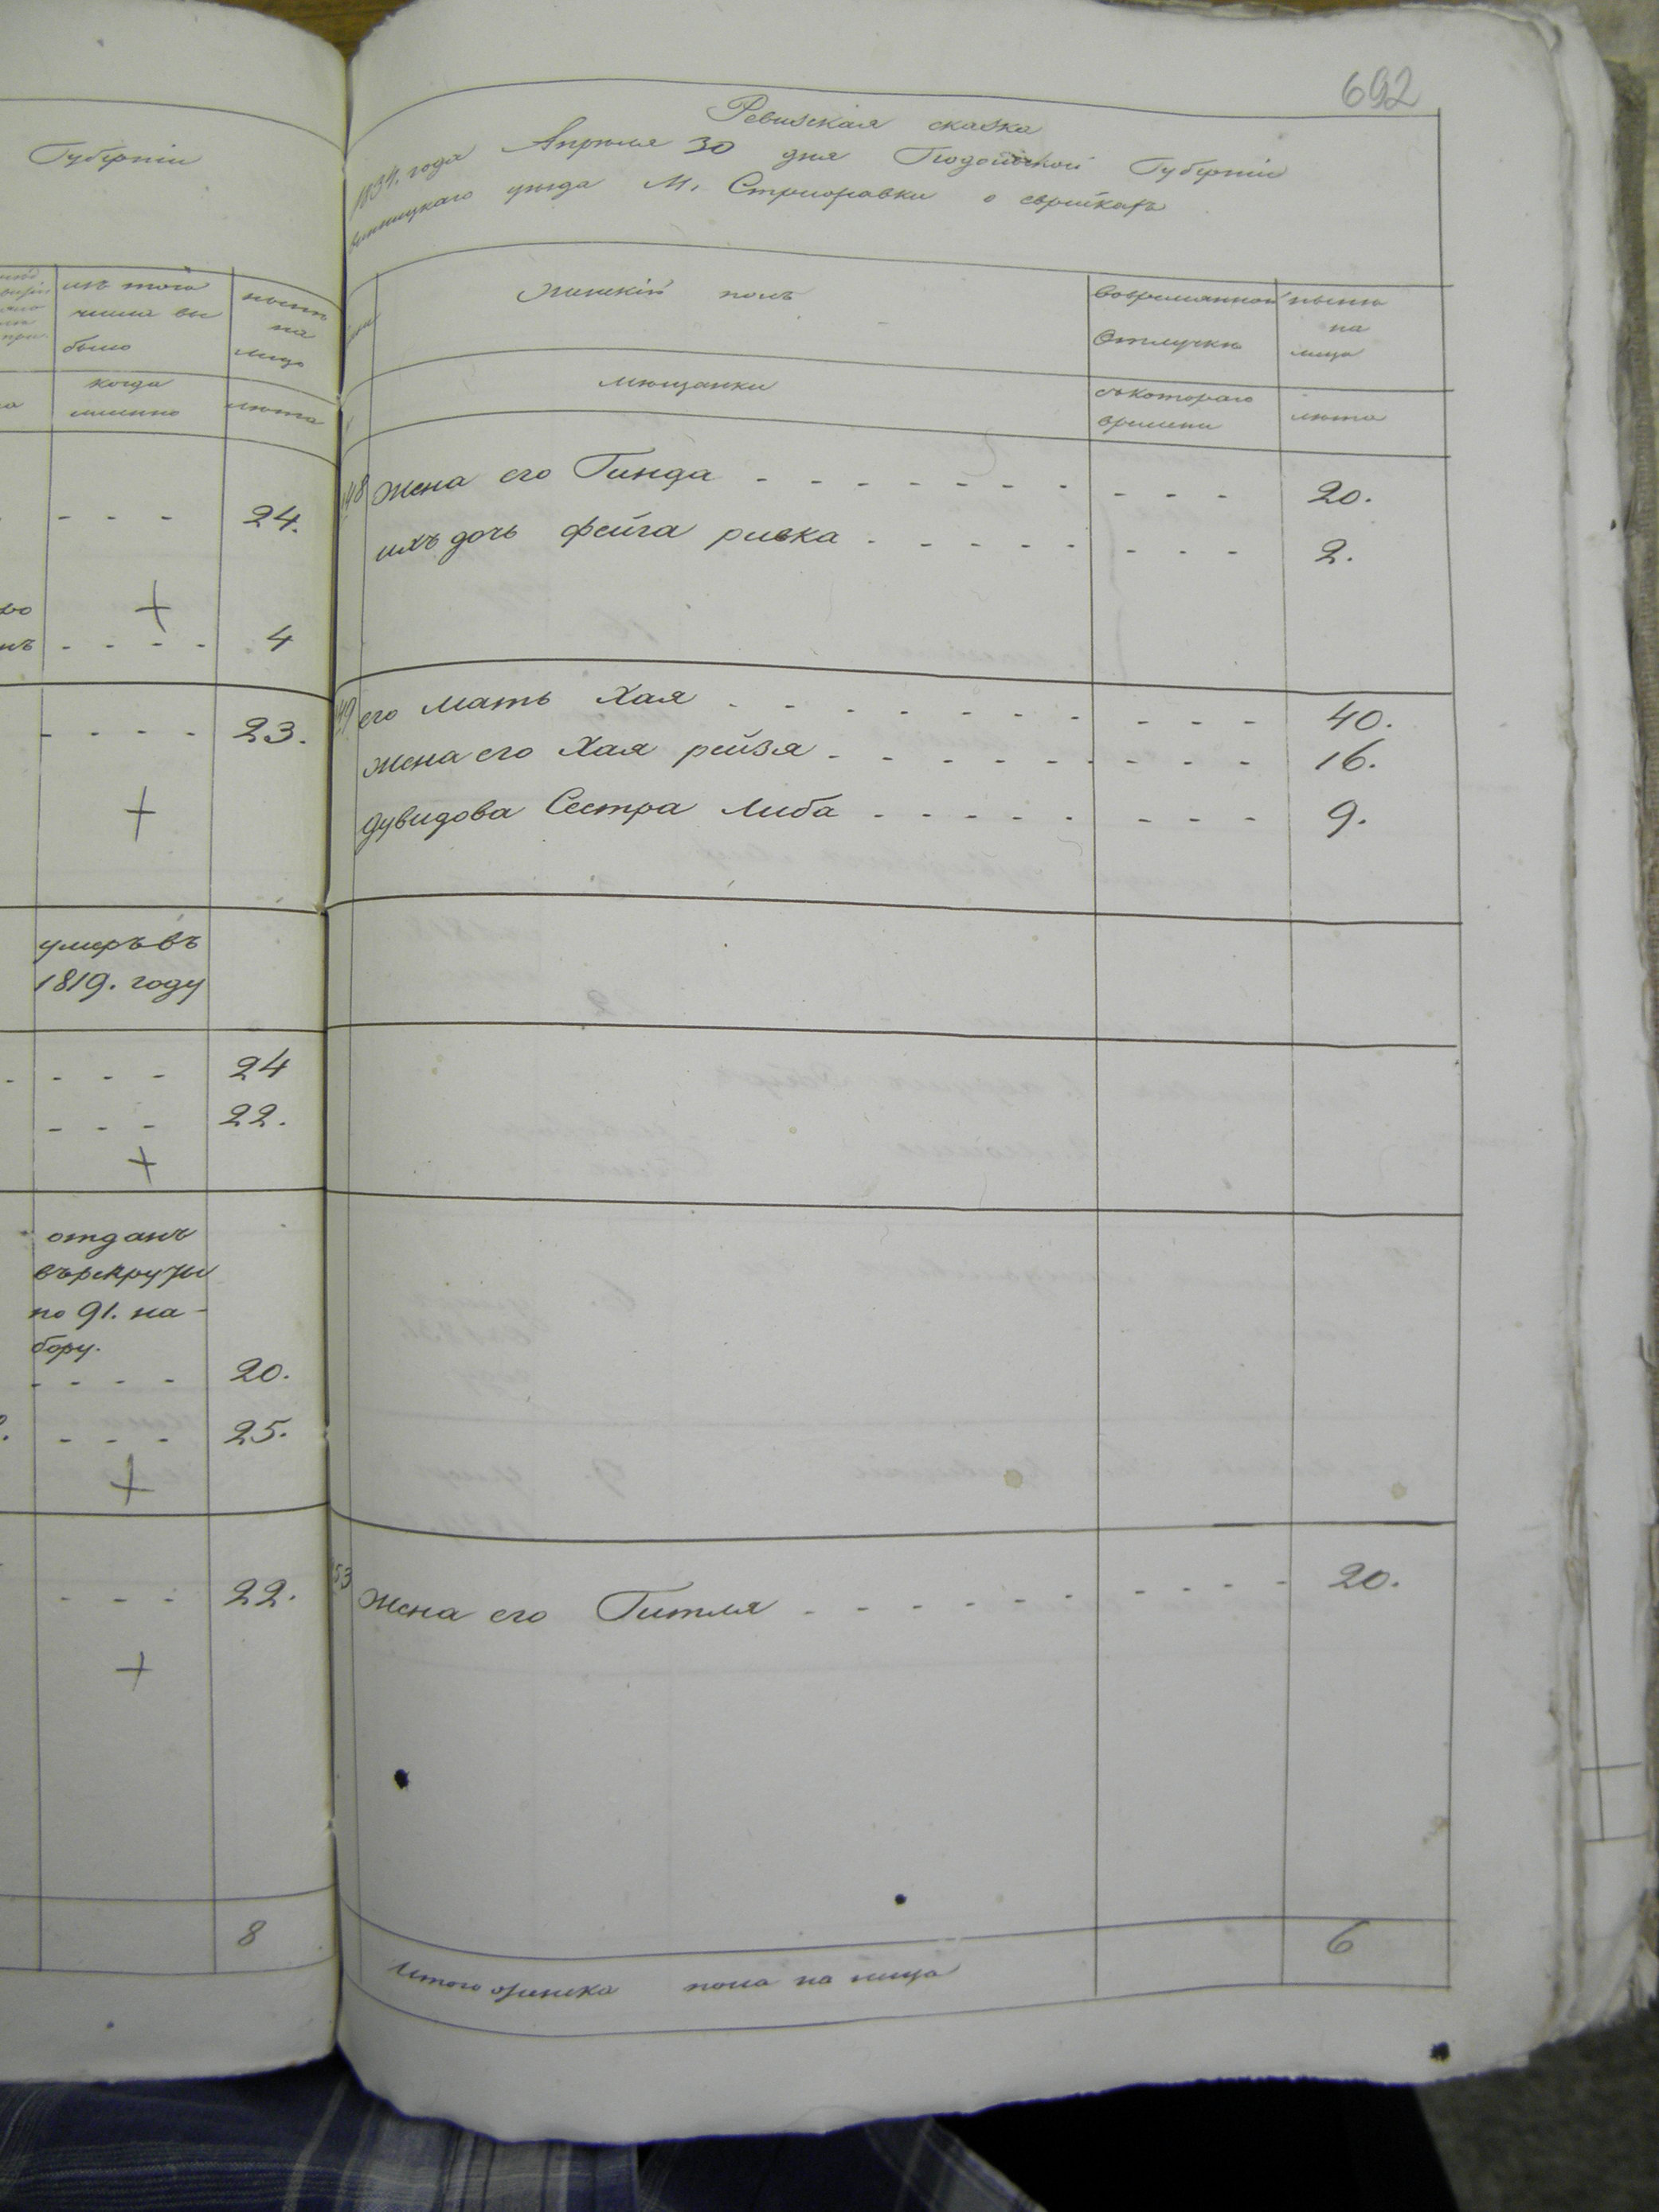 Губерніи
изъ того
числа вы
было
ныне
на
лицо
когда
именно
лета
- - - 24.
- - - - 4
- - - - 23.
умеръ въ
1819. году
- - - - 24
- - - 22.
отданъ
въ рекруты
по 91. на-
бору.
- - - - 20.
- - - 25.
- - - 22.
8
692
Ревизская сказка
1834. года Апреля 30 дня Подольской Губерніи
винницкаго уезда М. Стрижавки о еврейкахъ
женскій полъ
вовременной
отлучке
ныне
на
лицо
мещанки
съ котораго
времени
лета
148 жена его Гинда - - - - - - - - - - 20.
ихъ дочь фейга ривка - - - - - - - - 2.
149 его мать Хая - - - - - - - - - - 40.
жена его Хая рейзя - - - - - - - - - 16.
дувидова Сестра Либа - - - - - - - - 9.
153 жена его Гитля - - - - - - - - - - 20.
Итого женска пола на лицо 6